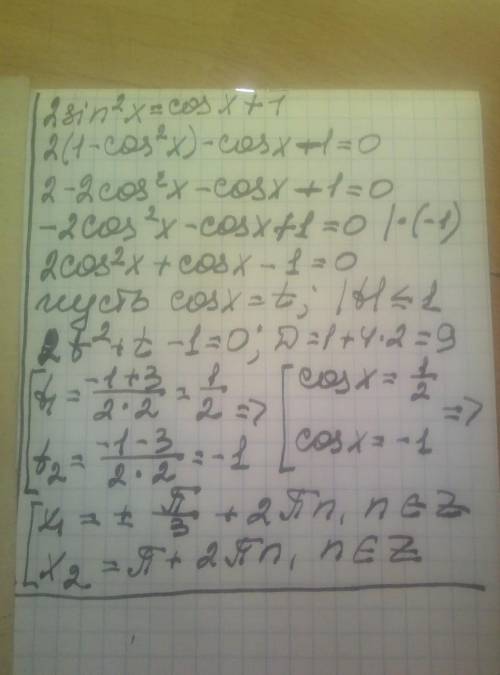 2sin²x=cosx+1
2(1-cos²x)-cosx-1=0
2-2cos²x-cosx-1=0
-2cos²x-cosx+1=0 |·(-1)
2cos²x+cosx-1=0
пусть cosx=t; |t|≤1
2t²+t-1=0; D=1+4·2=9
[t₁=(-1+3)/(2·2)=1/2 => [cosx=1/2 =>
t₂=(-1-3)/(2·2)=-1 cosx=-1
[x₁=±π/3+2πn, n∈Z
x₂=π+2πn, n∈Z